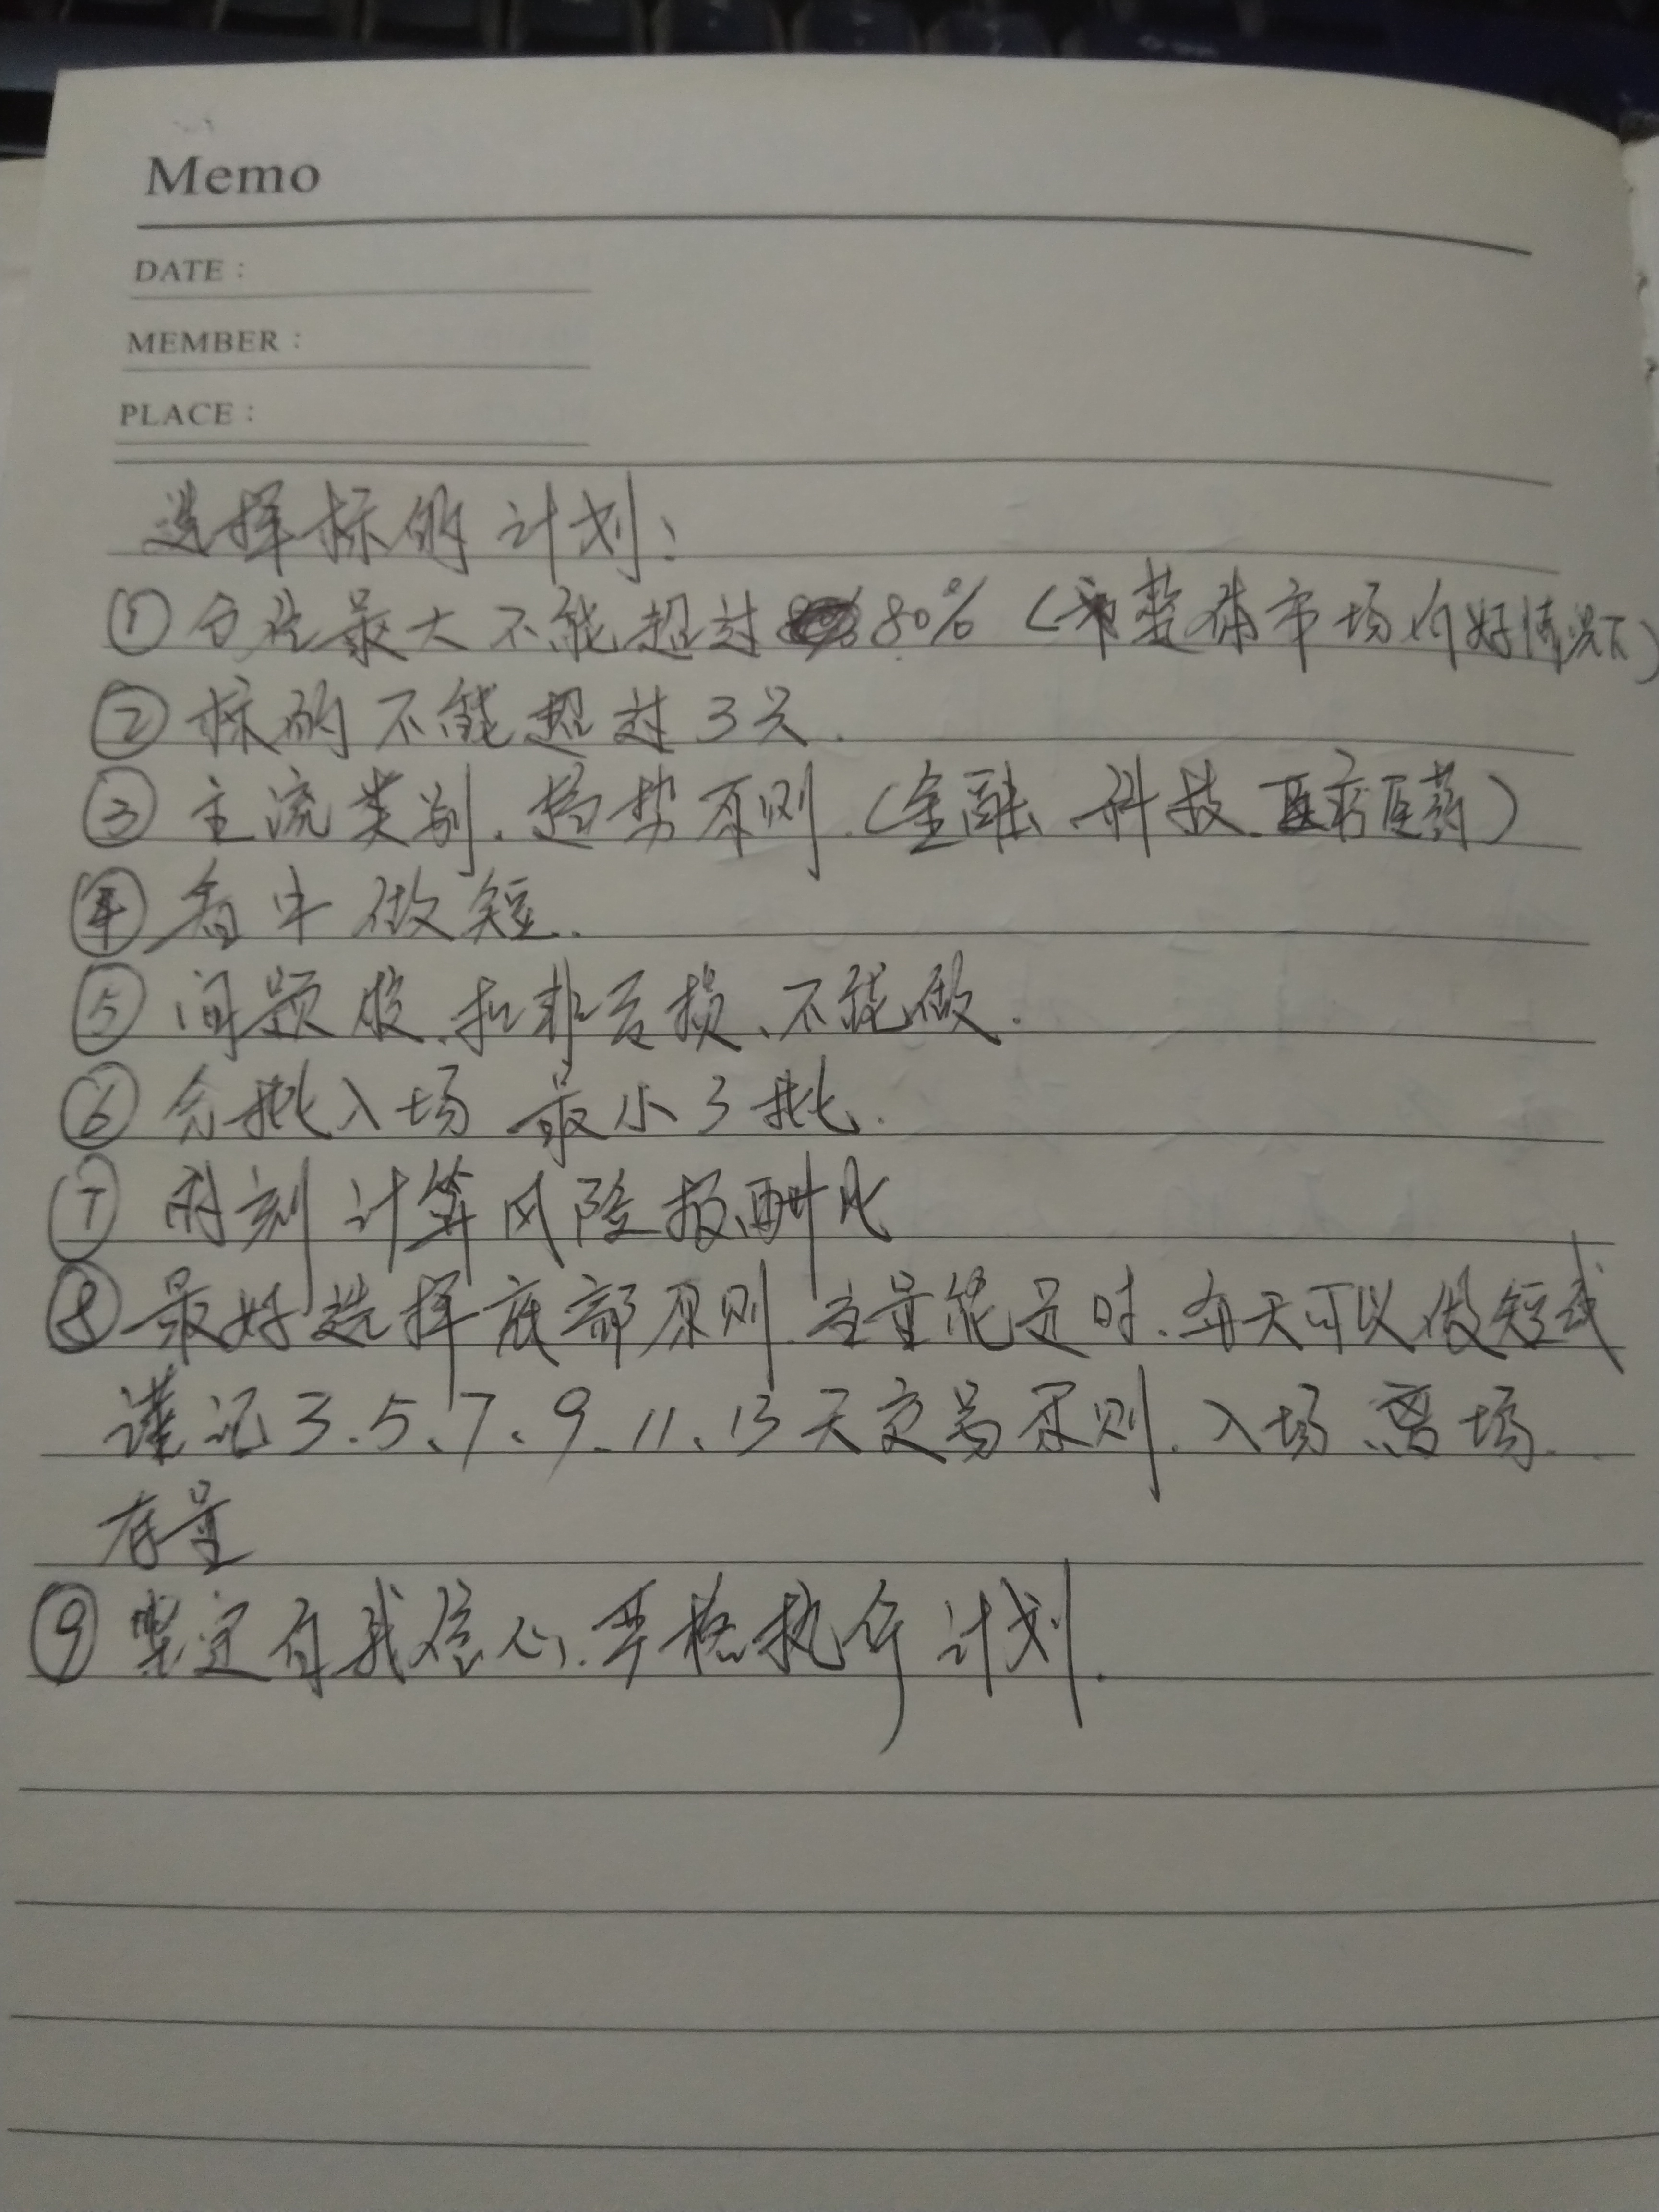 Memo
DATE：
MEMBER：
PLACE：
选择标的计划：
①仓位最大不能超过80%（整体市场向好情况下）
②标的不能超过3只.
③主流类别、趋势原则.（金融、科技、医疗医药）
④看中做短.
⑤问题股、扣非亏损、不能做.
⑥分批入场 最小3批.
⑦时刻计算风险报酬比
⑧最好选择底部原则.量能足时、每天可以做短或
谨记3、5、7、9、11、13天交易原则、入场、离场.
存量
⑨坚定自我信心、严格执行计划.